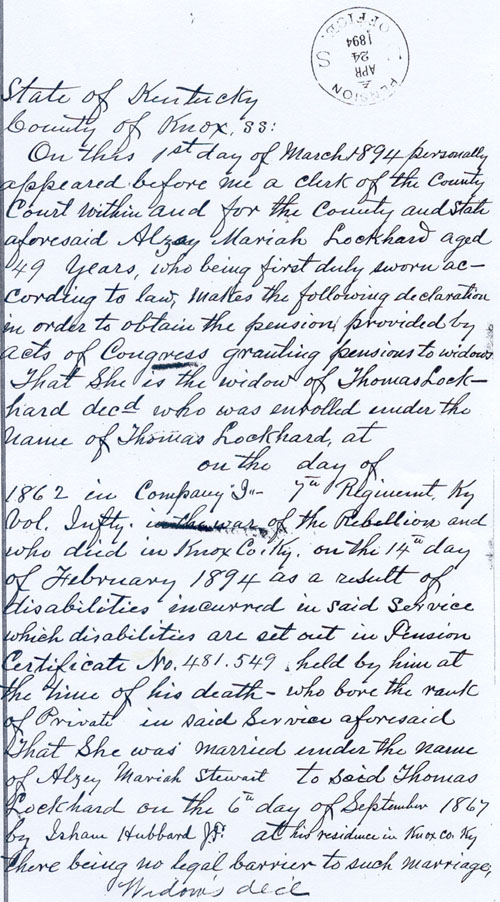 PENSION OFFICE
APR 24 1894
U S
State of Kentucky
County of Knox, SS:
On this 1st day of March 1894 personally
appeared before me a clerk of the County
Court within and for the County and State
aforesaid Alzey Mariah Lockhard aged
49 Years, who being first duly sworn ac-
cording to law, makes the following declaration
in order to obtain the pension provided by
acts of Congress granting pensions to widows
That She is the widow of Thomas Lock-
hard decd who was enrolled under the
name of Thomas Lockhard, at
on the day of
1862 in Company "I" 7th Regiment Ky
Vol. Infty. in the war of the Rebellion and
who died in Knox Co. Ky. on the 14th day
of February 1894 as a result of
disabilities incurred in said Service
which disabilities are set out in Pension
Certificate No. 481.549 held by him at
the time of his death - who bore the rank
of Private in said Service aforesaid
That She was married under the name
of Alzey Mariah Stewart to said Thomas
Lockhard on the 6th day of September 1867
by Isham Hubbard at his residence in Knox co. Ky
there being no legal barrier to such marriage,
Widow's decl